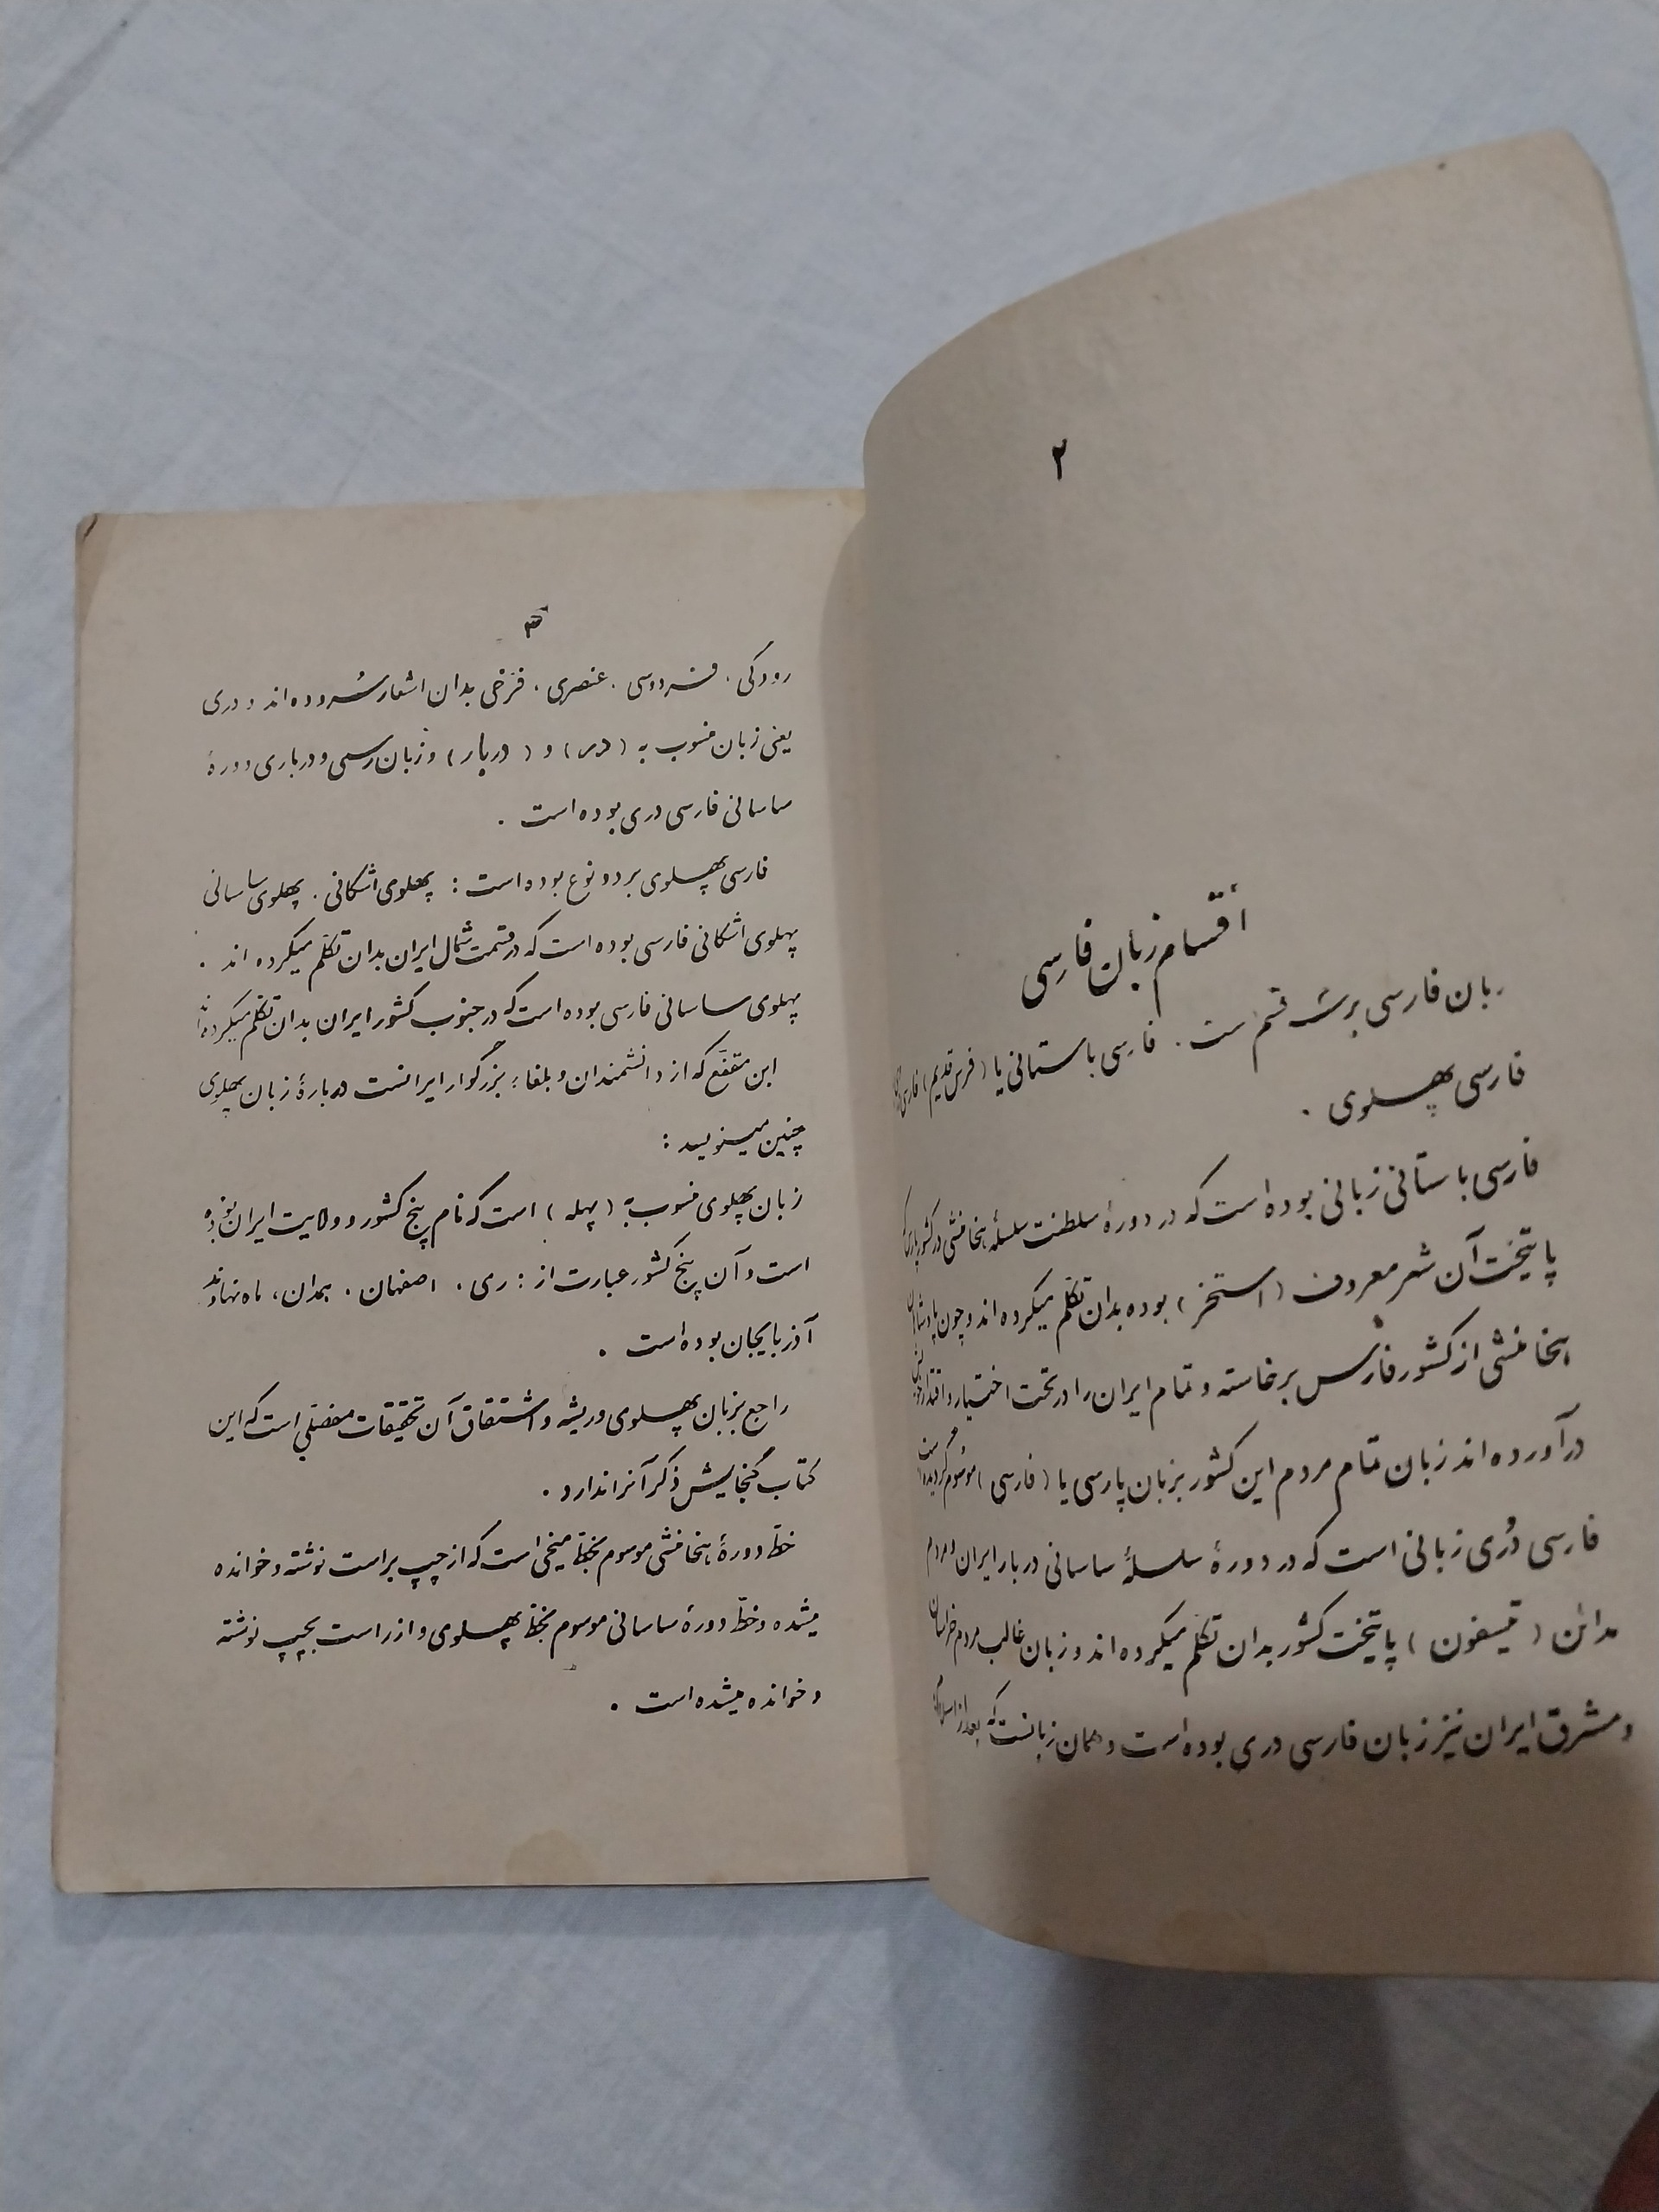 ۲
اقسام زبان فارسی
زبان فارسی بر سه قسم است . فارسی باستانی یا (فرس قدیم) فارسی
فارسی پهلوی .
فارسی باستانی زبانی بوده است که در دورهٔ سلطنت سلسلهٔ هخامنشی در کشور پارس که
پایتخت آن شهر معروف (استخر) بوده بدان تکلّم میکرده اند و چون پادشاهان
هخامنشی از کشور فارس برخاسته و تمام ایران را در تحت اختیار و اقتدار
درآورده اند زبان تمام مردم این کشور بزبان پارسی یا (فارسی) موسوم گردیده است
فارسی دُری زبانی است که در دورهٔ سلسلهٔ ساسانی دربار ایران و مردم
مدائن (تیسفون) پایتخت کشور بدان تکلّم میکرده اند و زبان غالب مردم خراسان
و مشرق ایران نیز زبان فارسی دری بوده است و همان زبانست که بعد از اسلام
۳
رودکی . فردوسی . عنصری . فرّخی بدان اشعار سُروده اند و دری
یعنی زبان منسوب به (در) و (دربار) و زبان رسمی و درباری دورهٔ
ساسانی فارسی دری بوده است .
فارسی پهلوی بر دو نوع بوده است : پهلوی اشکانی . پهلوی ساسانی
پهلوی اشکانی فارسی بوده است که در قسمت شمال ایران بدان تکلّم میکرده اند .
پهلوی ساسانی فارسی بوده است که در جنوب کشور ایران بدان تکلّم میکرده اند
ابن مقفّع که از دانشمندان و بلغاء بزرگوار ایرانست دربارهٔ زبان پهلوی
چنین مینویسد :
زبان پهلوی منسوب به (پهله) است که نام پنج کشور و ولایت ایران بوده
است و آن پنج کشور عبارت از : ری . اصفهان . همدان ، ماه نهاوند
آذربایجان بوده است .
راجع بزبان پهلوی و ریشه و اشتقاق آن تحقیقات مفصّلی است که این
کتاب گنجایش ذکر آنرا ندارد .
خطّ دورهٔ هخامنشی موسوم بخطّ میخی است که از چپ براست نوشته و خوانده
میشده و خطّ دورهٔ ساسانی موسوم بخطّ پهلوی و از راست بچپ نوشته
و خوانده میشده است .